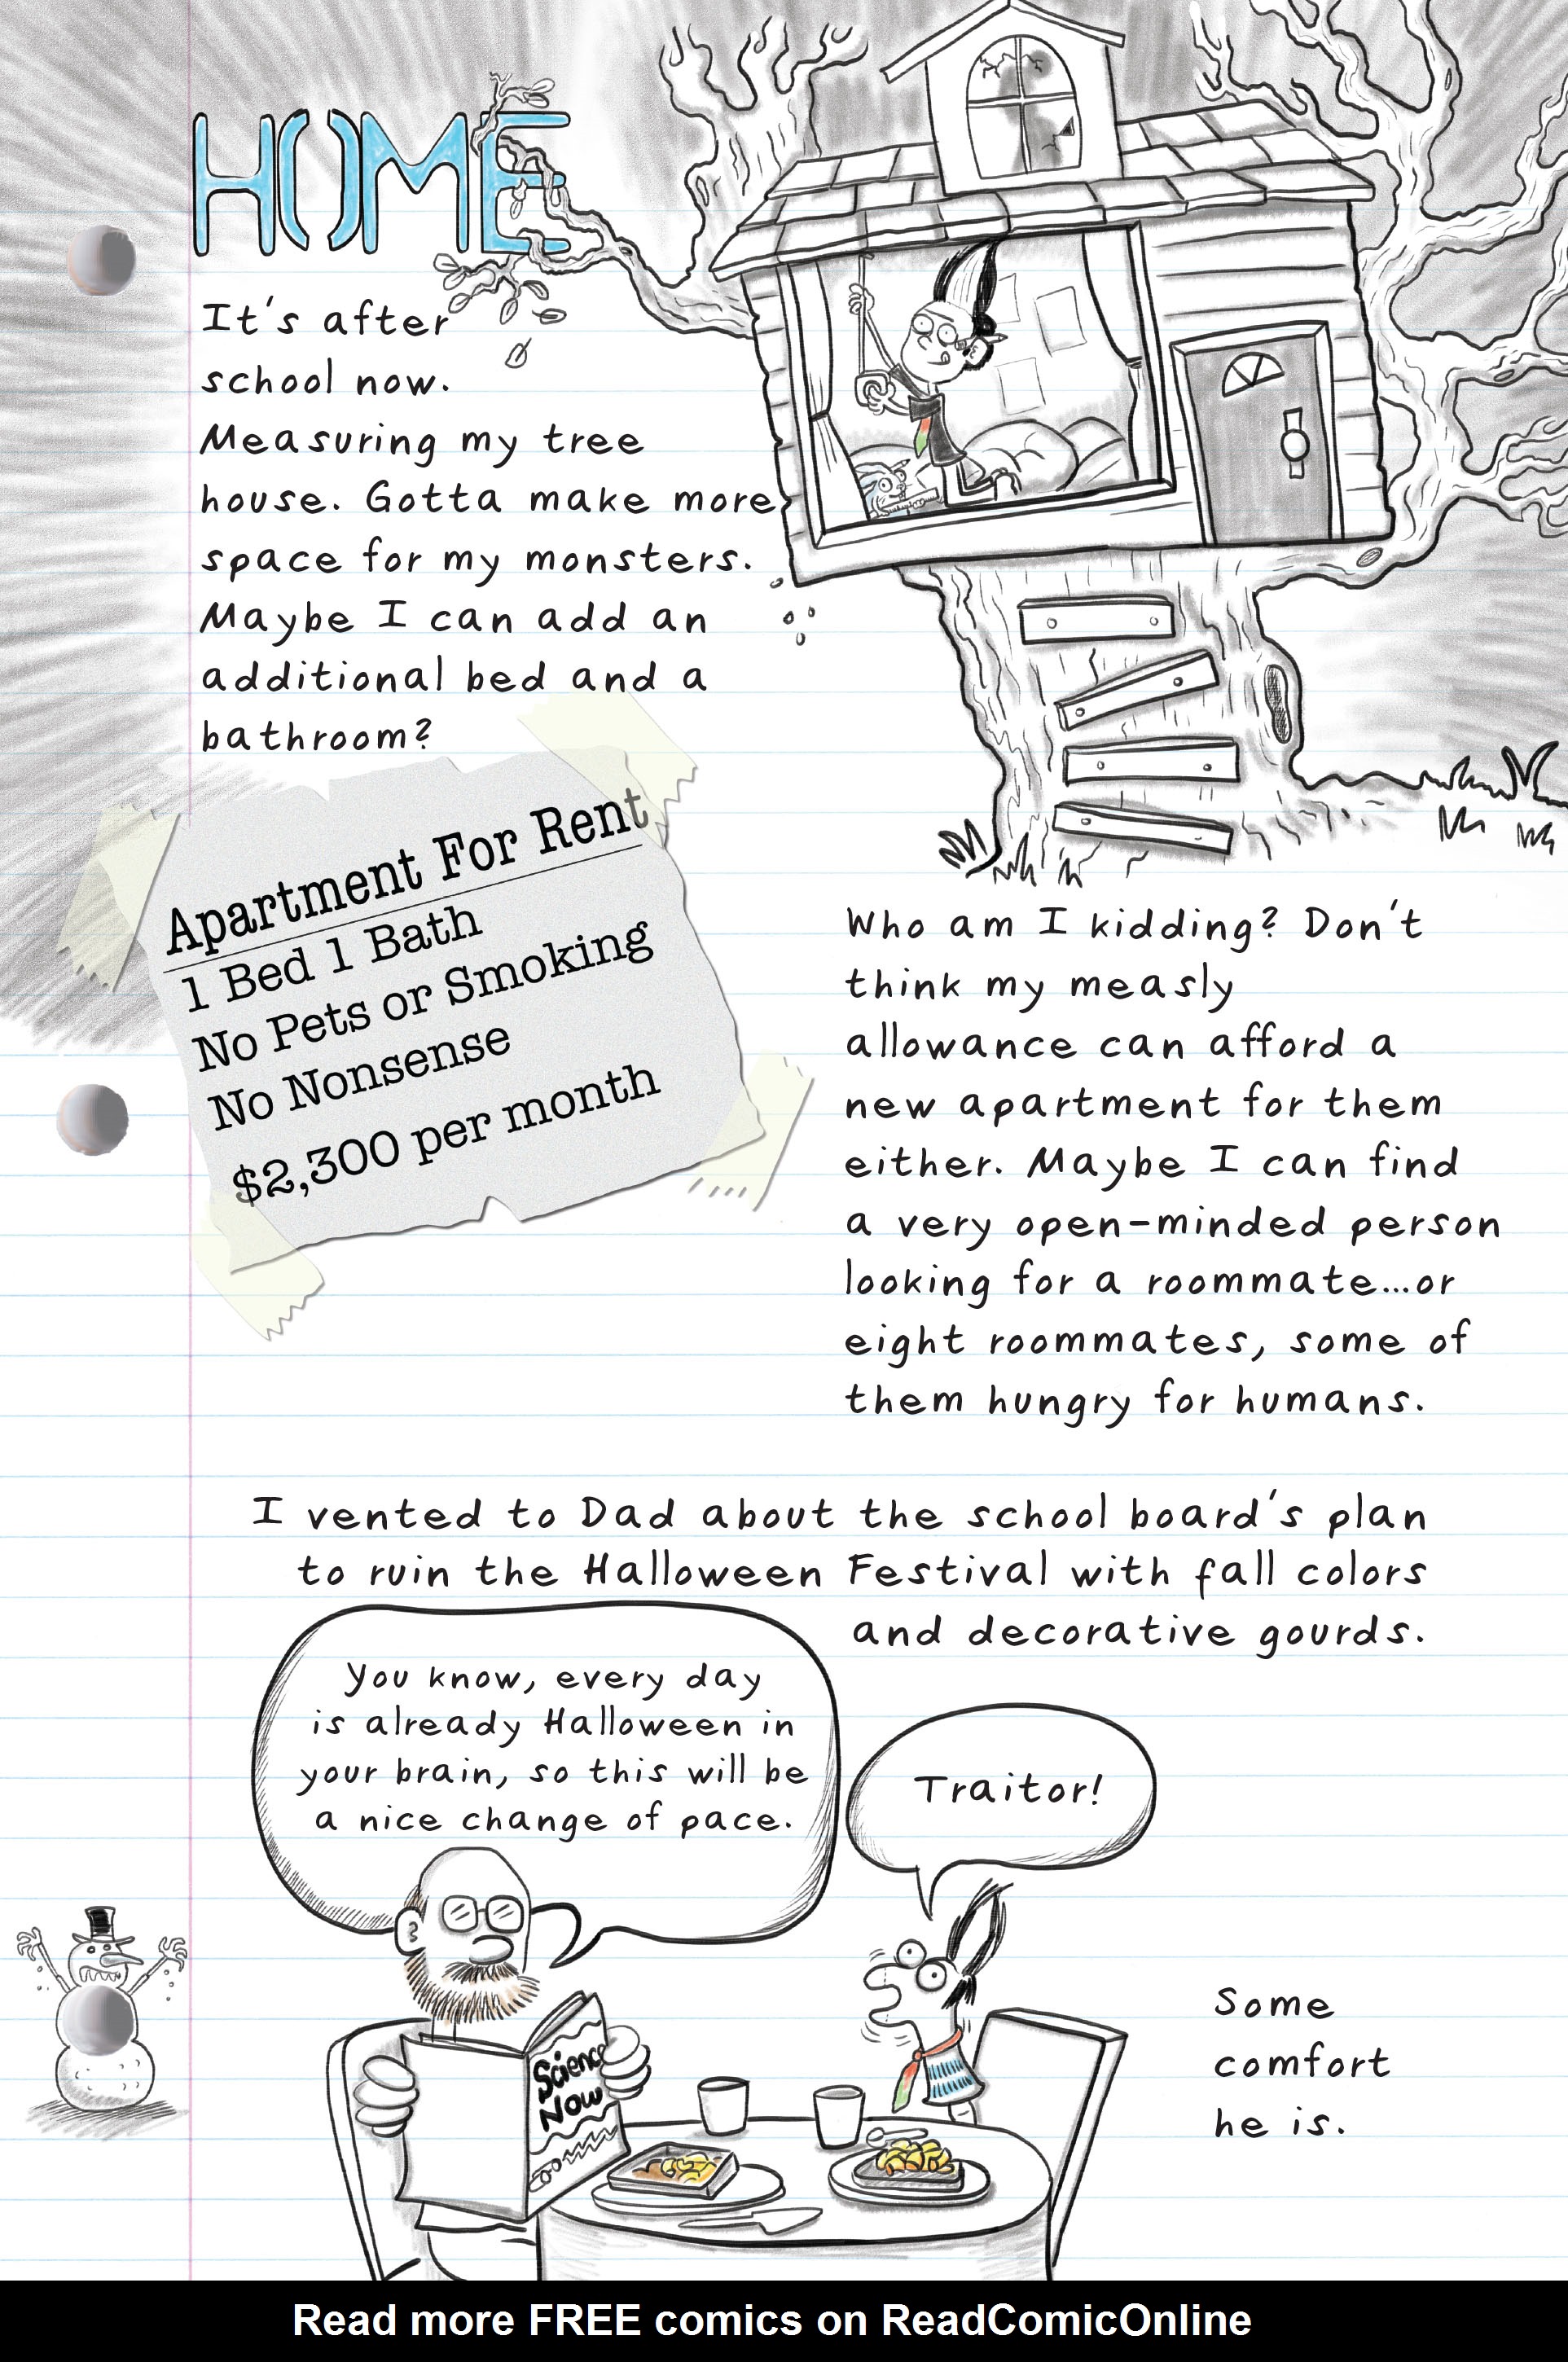 HOME
It's after
school now.
Measuring my tree
house. Gotta make more
space for my monsters.
Maybe I can add an
additional bed and a
bathroom?
Apartment For Rent
1 Bed 1 Bath
No Pets or Smoking
No Nonsense
$2,300 per month
Who am I kidding? Don't
think my measly
allowance can afford a
new apartment for them
either. Maybe I can find
a very open-minded person
looking for a roommate...or
eight roommates, some of
them hungry for humans.
I vented to Dad about the school board's plan
to ruin the Halloween Festival with fall colors
and decorative gourds.
You know, every day
is already Halloween in
your brain, so this will be
a nice change of pace.
Traitor!
Science
Now
Some
comfort
he is.
Read more FREE comics on ReadComicOnline